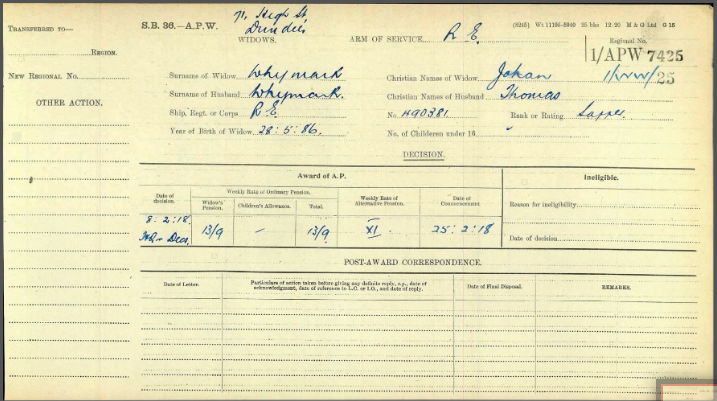 71. High St.
Dundee
S.B. 36.—A.P.W.
WIDOWS.
ARM OF SERVICE. R E.
(6245) Wt 11196-5940 25 bks 12/20 M & G Ltd G 16
Regional No.
1/APW 7425
1/WW/25
TRANSFERRED TO—
REGION.
NEW REGIONAL No.
OTHER ACTION.
Surname of Widow. Whymark
Christian Names of Widow. Johan
Surname of Husband. Whymark.
Christian Names of Husband. Thomas
Ship, Regt. or Corps R.E.
No. 490381.
Rank or Rating. Sapper.
Year of Birth of Widow. 28.5.86.
No. of Children under 16
DECISION.
Award of A.P.
Ineligible.
Date of decision.
Weekly Rate of Ordinary Pension.
Widow's Pension.
Children's Allowance.
Total.
Weekly Rate of Alternative Pension.
Date of Commencement
Reason for ineligibility.
8.2.18.
13/9
—
13/9
XI.
25.2.18
Date of decision.
POST-AWARD CORRESPONDENCE.
Date of Letter.
Particulars of action taken before giving any definite reply, e.g., date of acknowledgment, date of reference to L.C. or I.O., and date of reply.
Date of Final Disposal.
REMARKS.